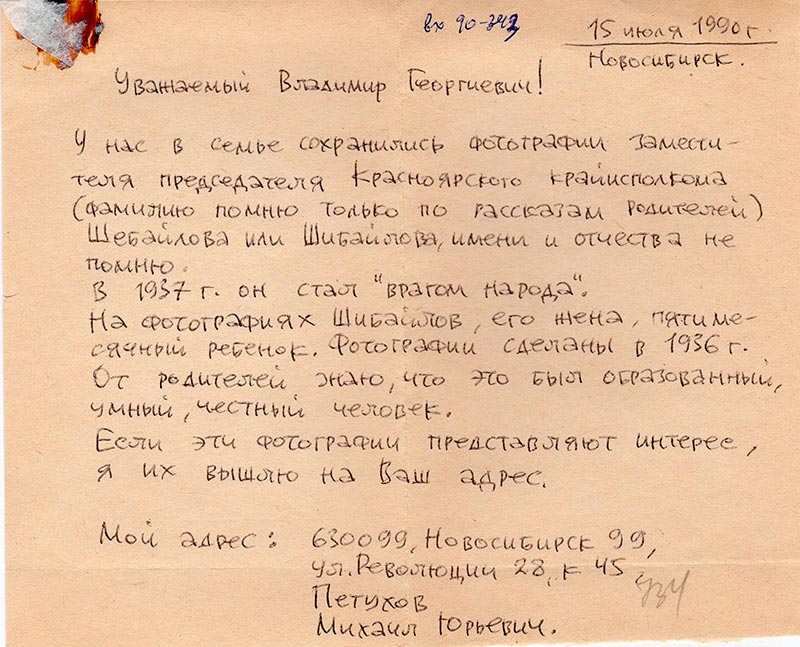 вх 90-343
15 июля 1990 г.
Новосибирск.
Уважаемый Владимир Георгиевич!
У нас в семье сохранились фотографии замести-
теля председателя Красноярского крайисполкома
(фамилию помню только по рассказам родителей)
Шебайлова или Шибайлова, имени и отчества не
помню.
В 1937 г. он стал "врагом народа".
На фотографиях Шибайлов, его жена, пятиме-
сячный ребенок. Фотографии сделаны в 1936 г.
От родителей знаю, что это был образованный,
умный, честный человек.
Если эти фотографии представляют интерес,
я их вышлю на Ваш адрес.
Мой адрес: 630099, Новосибирск 99,
ул. Революции 28, к 45
Петухов
Михаил Юрьевич.